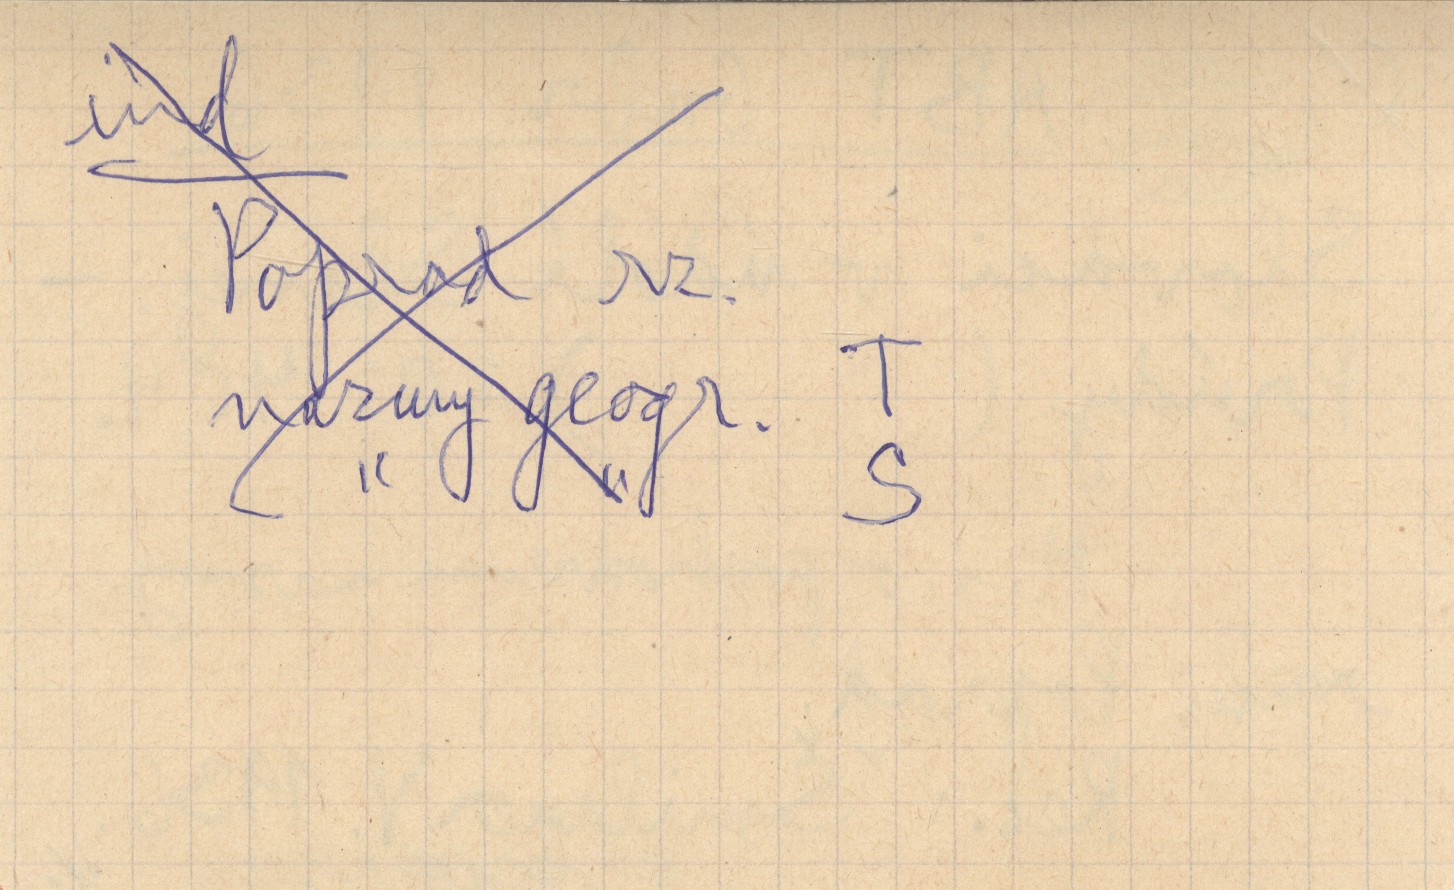 ind
Poprad rz.
nazwy geogr. T
" " S